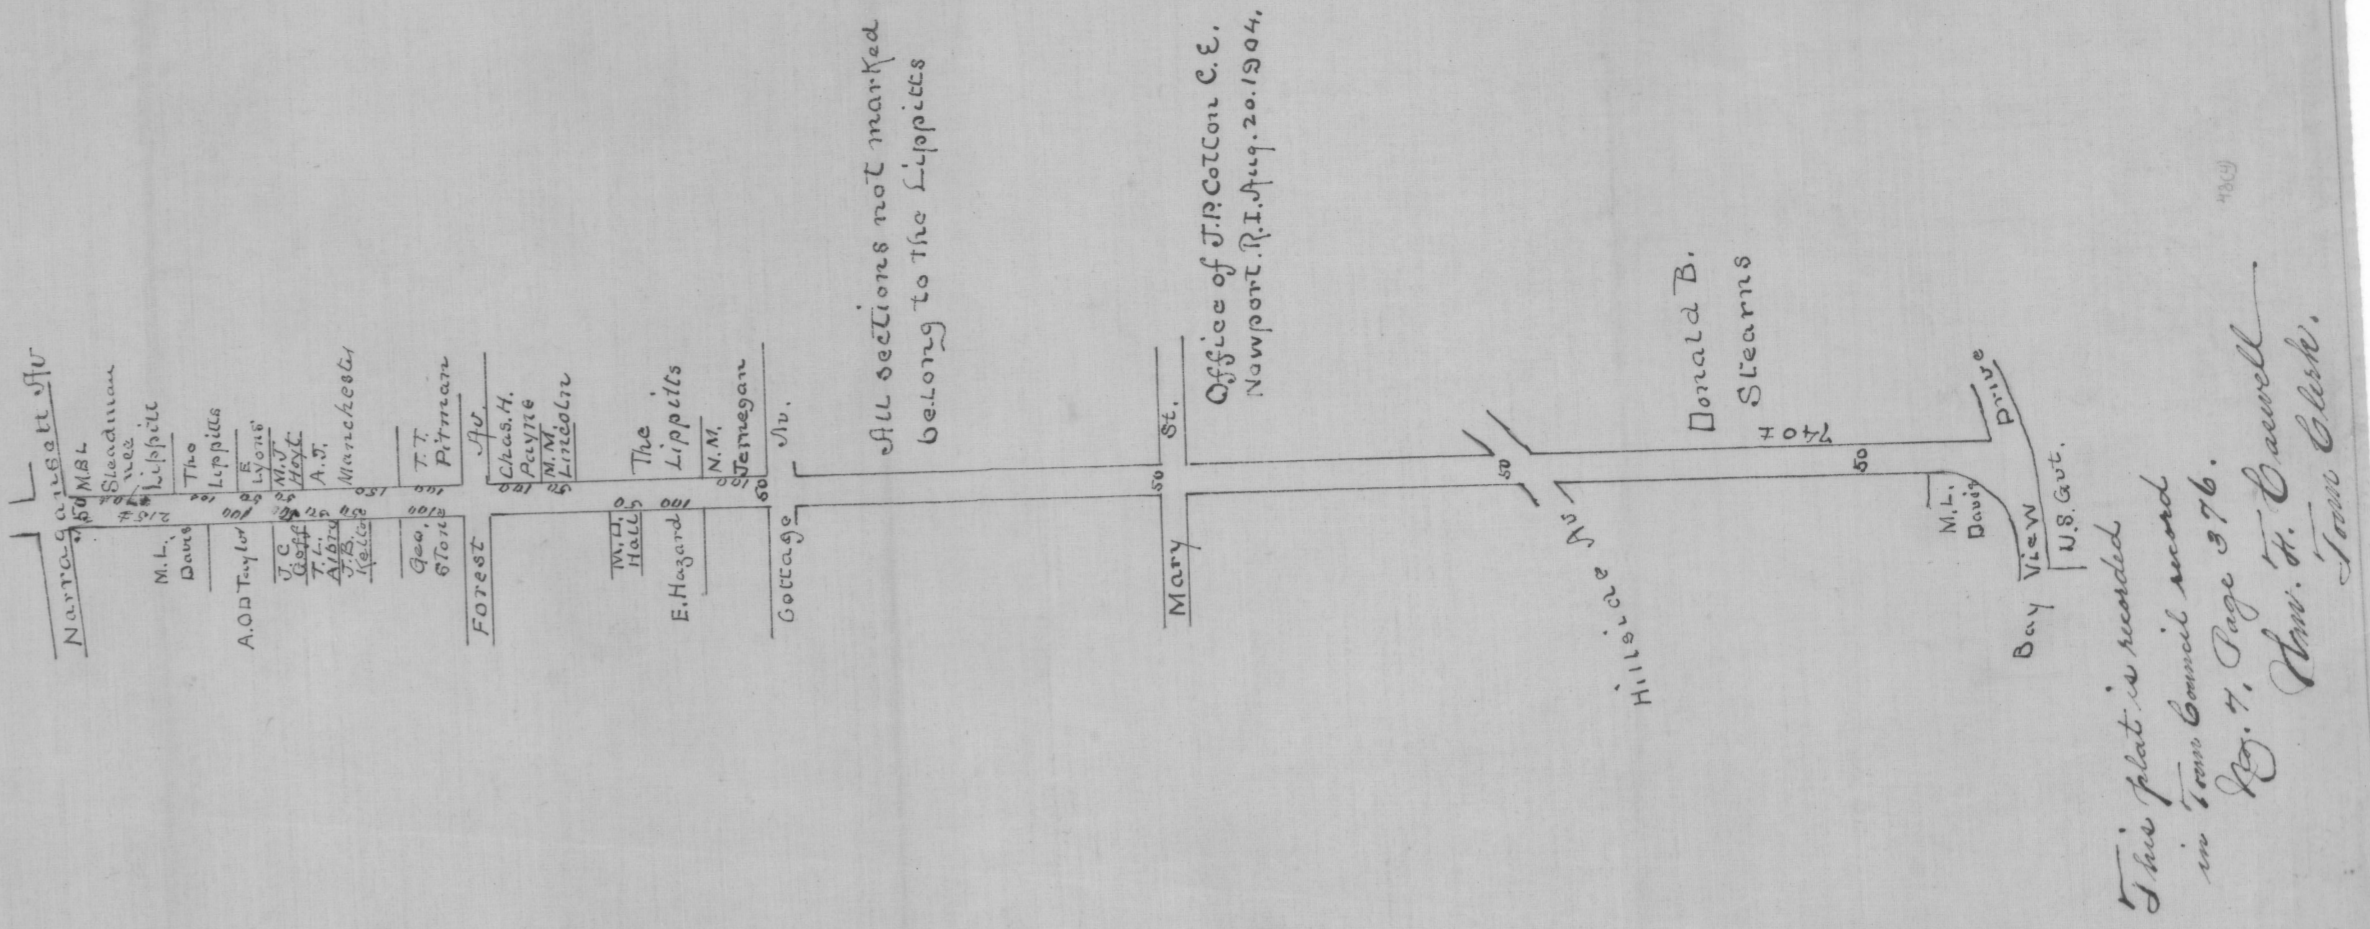 Narragansett Av
50
M.B.L
Steadman
nee
Lippitt
The
Lippitts
E
Lyons
M.J
Hoyt
A.J.
Manchester
T.T.
Pitman
M.L.
Davis
A.O'DTaylor
100
J C
Goff
T.L.
J.B.
Geo.
Stone
100
Forest Av.
Chas.H.
Payne
M.M.
Lincoln
The
Lippitts
N.M.
Jernegan
M.H.
Hall
50
E.Hazard
100
Cottage Av.
50
All sections not marked
belong to the Lippitts
Mary St.
50
Office of J.P.Cotton C.E.
Newport.R.I.Aug.20.1904.
Hillside Av
50
Donald B.
Stearns
740 ±
50
M.L.
Davis
Bay View Drive
U.S.Gvt.
This plat is recorded
in Town Council record
No. 7. Page 376.
Wm. F. Caswell
Town Clerk.